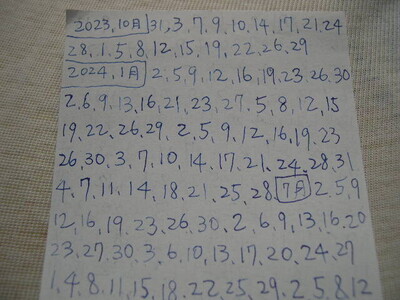 2023,10月 31,3,7,9,10,14,17,21,24
28,1,5,8,12,15,19,22,26,29
2024,1月 2,5,9,12,16,19,23,26,30
2,6,9,13,16,21,23,27,5,8,12,15
19,22,26,29,2,5,9,12,16,19,23
26,30,3,7,10,14,17,21,24,28,31
4,7,11,14,18,21,25,28,7月 2,5,9
12,16,19,23,26,30,2,6,9,13,16,20
23,27,30,3,6,10,13,17,20,24,27
1,4,8,11,15,18,22,25,29,2,5,8,12